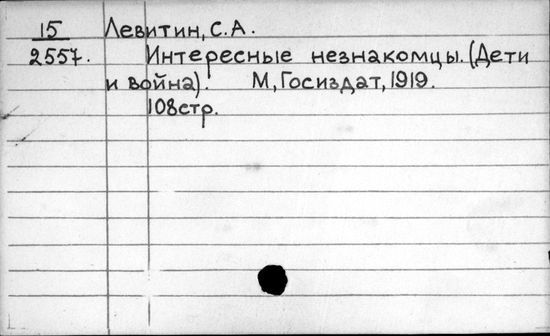 15 Левитин, С. А.
2557. Интересные незнакомцы. (Дети
и война). М, Госиздат, 1919.
108стр.